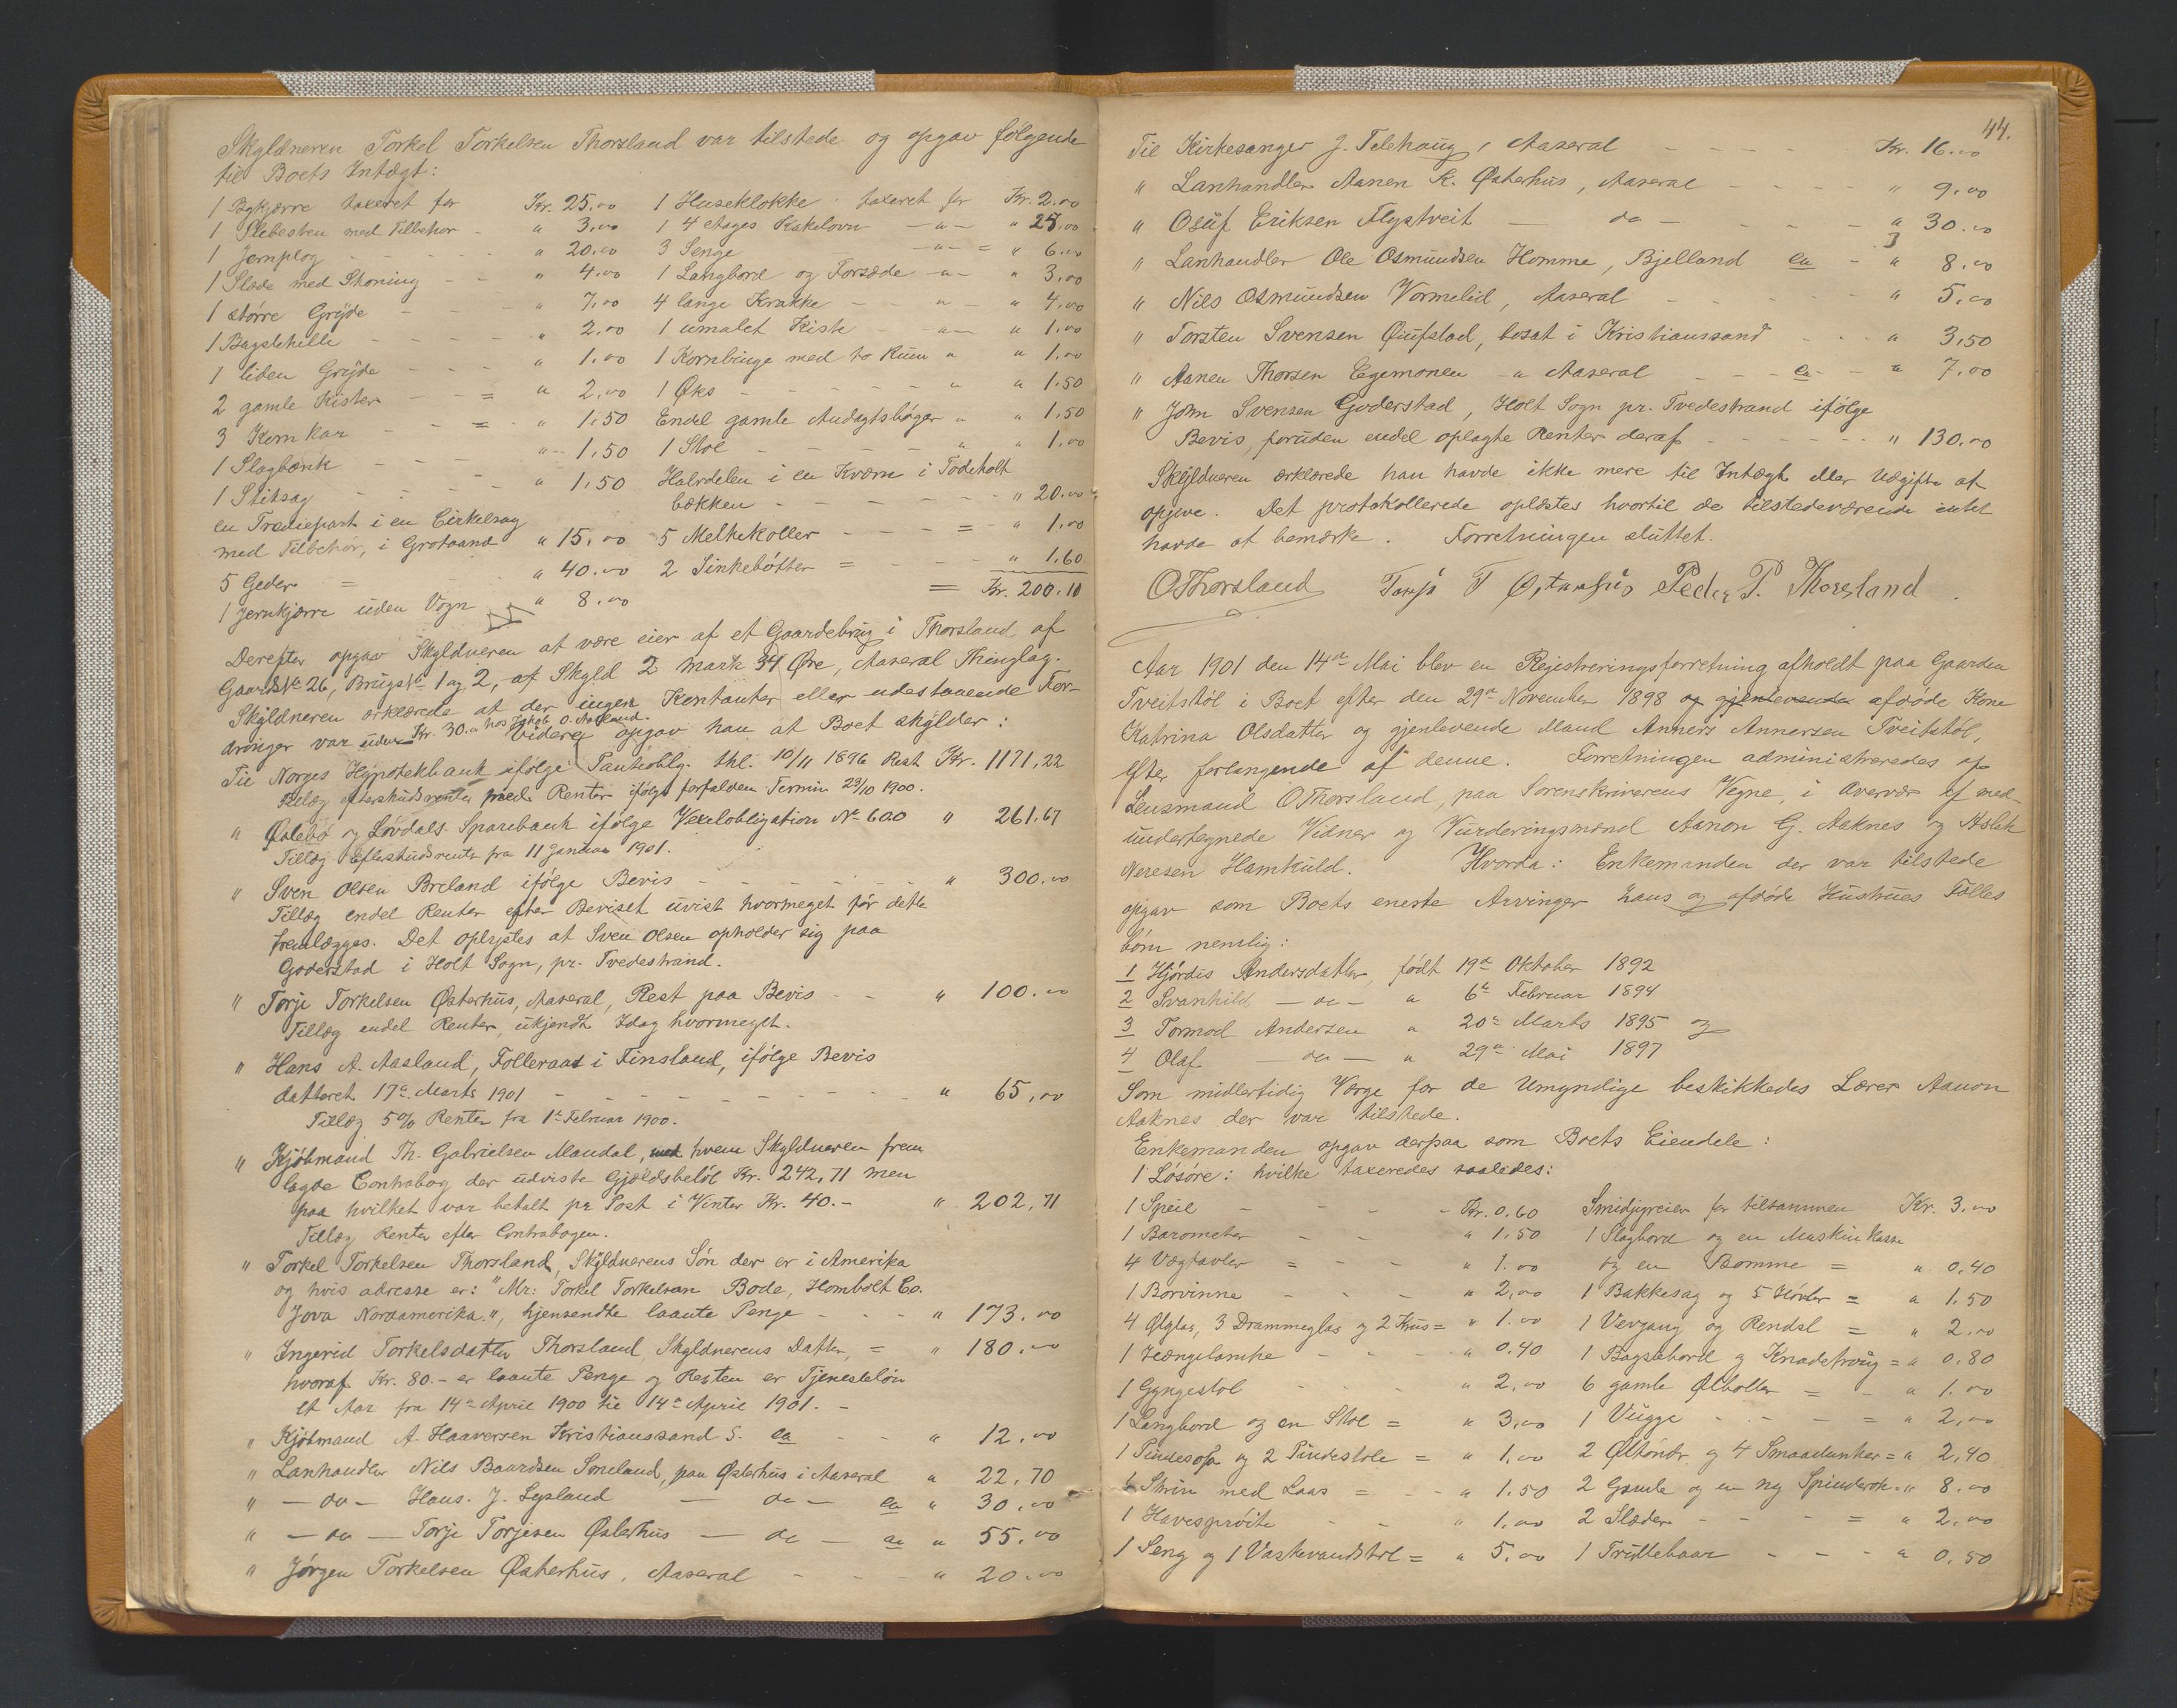 Skyldneren Torkel Torkelsen Thorsland var tilstede og opgav følgende
til Boets Intægt:
1 Bykjærre taxeret for Kr. 25.00 1 Huseklokke taxeret for Kr. 2.00
1 Slebesten med Tilbehør - " 3.00 1 4 etages Kakelovn - " - " 25.00
1 Jernplog - - - - " 20.00 3 Senge - " - = " 6.00
1 Slæde med Skoning - - " 4.00 1 Langbord og Forsæde - " - " 3.00
1 større Gryde - - " 7.00 4 lange Krakke - - " - " 4.00
1 Bagstehelle - - - - " 2.00 1 umalet Kiste - " - " 1.00
1 liden Gryde - - - " 1.00 1 Kornbinge med to Rum " " 1.00
2 gamle Kister - - = " 2.00 1 Øks - - - - - " " 1.50
3 Kornkar - - = - " 1.50 Endel gamle Andagtsbøger " " 1.50
1 Slagbænk - - - " 1.50 1 Stol - - - - " " 1.00
1 Stiksag - - - - " 1.50 Halvdelen i en Kværn i Todeholt
bækken - - - - - - " 20.00
en Trediepart i en Cirkelsag
med Tilbehør, i Grotaand " 15.00 5 Melkekoller - - = - " 1.00
5 Geder = - - " 40.00 2 Sinkebøtter = - - - " 1.60
1 Jernkjærre uden Vogn " 8.00 = Kr. 200.10
Derefter opgav Skyldneren at være eier af et Gaardebrug i Thorsland af
Gaards No 26, Brugs No 1 og 2, af Skyld 2 mark 34 Øre, Aaseral Thinglag.
Skyldneren erklærede at der ingen Kontanter eller udestaaende For-
dringer var uden Kr. 30.00 hos Jakob O. Aasland. Videre opgav han at Boet skylder:
Til Norges Hypotekbank ifølge Panteoblg. thl. 10/11 1896 Rest Kr. 1171,22
Tillæg efterskudsrenter med Renter ifølge forfalden Termin 23/10 1900.
" Øslebø og Løvdals Sparebank ifølge Vexelobligation No 600 " 261.67
Tillæg Efterskudsrenter fra 11 Januar 1901.
" Sven Olsen Breland ifølge Bevis - - - - - - " 300.00
Tillæg endel Renter efter Beviset uvist hvormeget før dette
fremlægges. Det oplystes at Sven Olsen opholder sig paa
Goderstad i Holt Sogn, pr. Tvedestrand.
" Torje Torkelsen Østerhus, Aaseral, Rest paa Bevis - - " 100.00
Tillæg endel Renter, ukjendt Idag hvormeget.
" Hans A. Aasland, Folleraas i Finsland, ifølge Bevis
datteret 17de Marts 1901 - - - - - - - - " 65.00
Tillæg 5% Renter fra 1te Februar 1900.
" Kjøbmand Th. Gabrielsen Mandal, med hvem Skyldneren frem
lagde Contrabog der udviste Gjældsbeløb Kr. 242,71 men
paa hvilket var betalt pr Post i Vinter Kr. 40.- " 202,71
Tillæg Renter efter Contrabogen.
" Torkel Torkelsen Thorsland, Skyldnerens Søn der er i Amerika
og hvis adresse er: "Mr: Torkel Torkelsen Bode, Hombolt Co.
Jova Nordamerika.", hjemsendte laante Penge - - - " 173.00
" Ingerid Torkelsdatter Thorsland, Skyldnerens Datter, = " 180.00
hvoraf Kr. 80.- er laante Penge og Resten er Tjenesteløn
et Aar fra 14de April 1900 til 14de April 1901. -
" Kjøbmand A. Haaversen Kristianssand S. ca - - " 12.00
" Lanhandler Nils Baardsen Smeland, paa Østerhus i Aaseral " 22,70
" - do - Hans. J. Lysland - do - ca " 30.00
" - do - Torje Torjesen Østerhus - do - ca " 55.00
" Jørgen Torkelsen Østerhus, Aaseral - - - " 20.00
44.
Til Kirkesanger J. Telehaug, Aaseral - - - - Kr. 16.00
" Lanhandler Aanen K. Østerhus, Aaseral - - - - " 9.00
" Osuf Eriksen Flystveit - do - - - - " 30.00
" Lanhandler Ole Osmundsen Homme, Bjelland ca - " 8.00
" Nils Osmundsen Vormelid, Aaseral - - - - - " 5.00
" Torsten Svensen Qiufstad, bosat i Kristianssand - - - " 3,50
" Aanen Thorsen Egemonen - " Aaseral - - - ca - - " 7.00
" John Svensen Goderstad, Holt Sogn pr. Tvedestrand ifølge
Bevis, foruden endel oplagte Renter deraf - - - - - - " 130.00
Skyldneren erklærede han havde ikke mere til Indtægt eller Udgift at
opgive. Det protokollerede oplæstes hvortil de tilstedeværende intet
havde at bemærke. Forretningen sluttet.
OThorsland Torjé T Østerhus Peder P. Thorsland
Aar 1901 den 14de Mai blev en Rejistreringsforretning afholdt paa Gaarden
Tveitstøl i Boet efter den 29de November 1898 og gjenlevende afdøde Kone
Katrina Olsdatter og gjenlevende Mand Anners Annersen Tveitstøl,
efter forlangende af denne. Forretningen administreredes af
Lensmand OThorsland, paa Sorenskriverens Vegne, i Overvær af med-
undertegnede Vidner og Vurderingsmænd Aanon G. Aaknes og Aslak
Neresen Hamkuld. Hvorda: Enkemanden der var tilstede
opgav som Boets eneste Arvinger hans og afdøde Hustrues Fælles
børn nemlig:
1 Hjørdis Andersdatter, født 19de Oktober 1892
2 Svanhild - do - " 6te Februar 1894
3 Tormod Andersen " 20de Marts 1895 og
4 Olaf - do - " 29de Mai 1897
Som midlertidig Værge for de Umyndige beskikkedes Lærer Aanon
Aaknes der var tilstede.
Enkemanden opgav derpaa som Boets Eiendele:
1 Løsøre: hvilke taxeredes saaledes:
1 Speil - - - - Kr. 0.60 Smidjgreier for tilsammen Kr. 3.00
1 Barometer - - " 1.50 1 Slagbord og en Maskin Kasse
4 Vægtavler = - - " 1.00 og en Bomme = " 0,40
1 Borvinne - - - " 2,00 1 Bakkesag og 5 Høvler = " 1.50
4 Ølglas, 3 Drammeglas og 2 Krus = " 1.00 1 Vevgang og Rendel = " 2.00
1 Hængelampe - - - " 0.40 1 Bagstebord og Knadetroug = " 0.80
1 Gyngestol - - - " 2,00 6 gamle Ølboller = - " 1.00
1 Langbord og en Stol = " 3,00 1 Vugge - - - = " 2,00
1 Pindesofa og 2 Pindestole = " 1,00 2 Øltønder og 4 Smaadunker = " 2,40
6 Skrin med Laas = - - " 1.50 2 Gamle og en ny Spinderok = " 8.00
1 Havesprøite - - " 1,00 2 Slæder - - - = " 2.00
1 Seng og 1 Vaskevandstol = " 5.00 1 Trillebaar - - - " 0,50